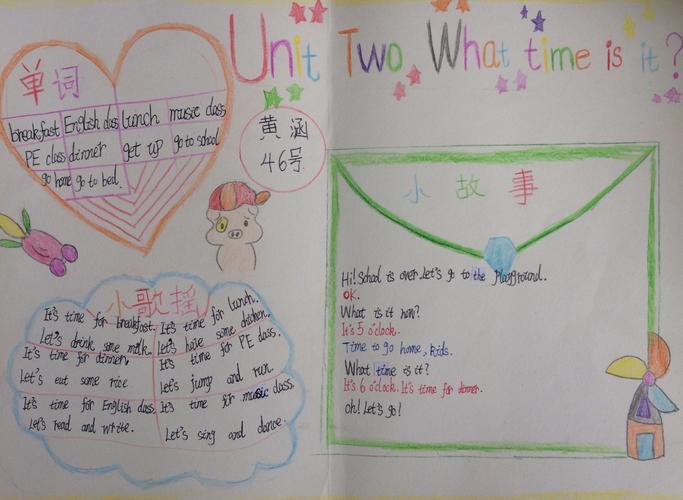 Unit Two What time is it?
单词
breakfast English class lunch music class
PE class dinner get up go to school
go home go to bed.
黄涵
46号
小歌摇
It's time for breakfast.
Let's drink some milk.
It's time for lunch.
Let's have some chicken.
It's time for dinner.
Let's eut some rice
It's time for PE class.
Let's jump and run.
It's time for English class
Let's read and write.
It's time for music class.
Let's sing and dance.
小故事
Hi! School is over. Let's go to the playground.
OK.
What is it now?
It's 5 o'clock.
Time to go home, kids.
What time is it?
It's 6 o'clock. It's time for dinner.
oh! Let's go!